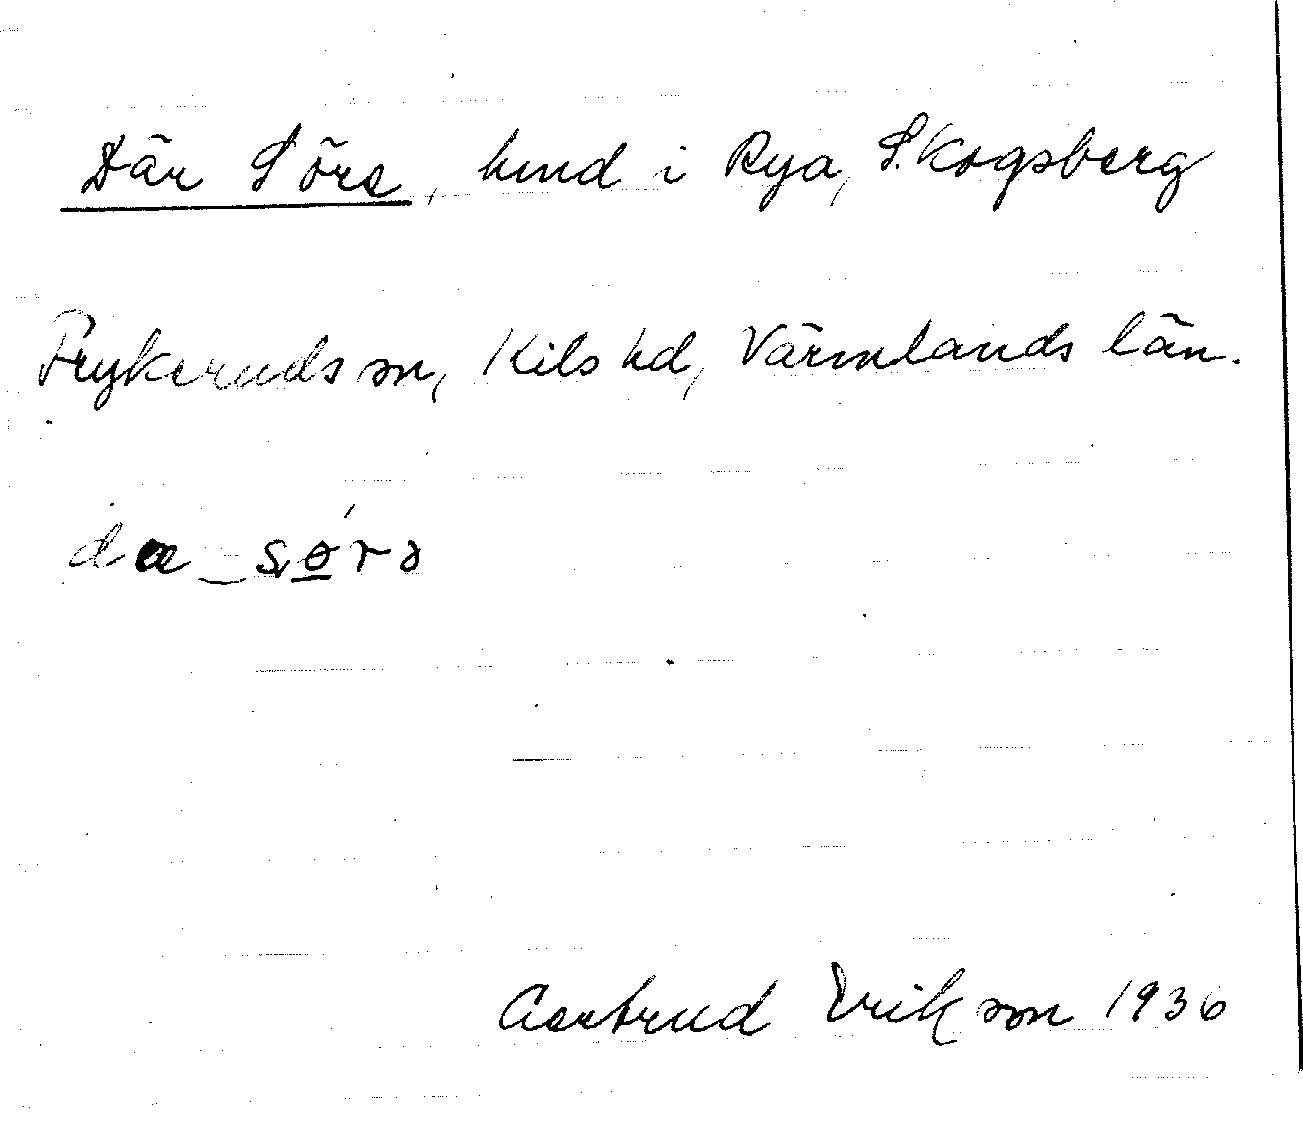 Där Söre, hmd i Rya, S. Kogsberg
Frykeruds sn, Kils hd, Värmlands län.
dœ sørə
Gertrud Erikson 1936